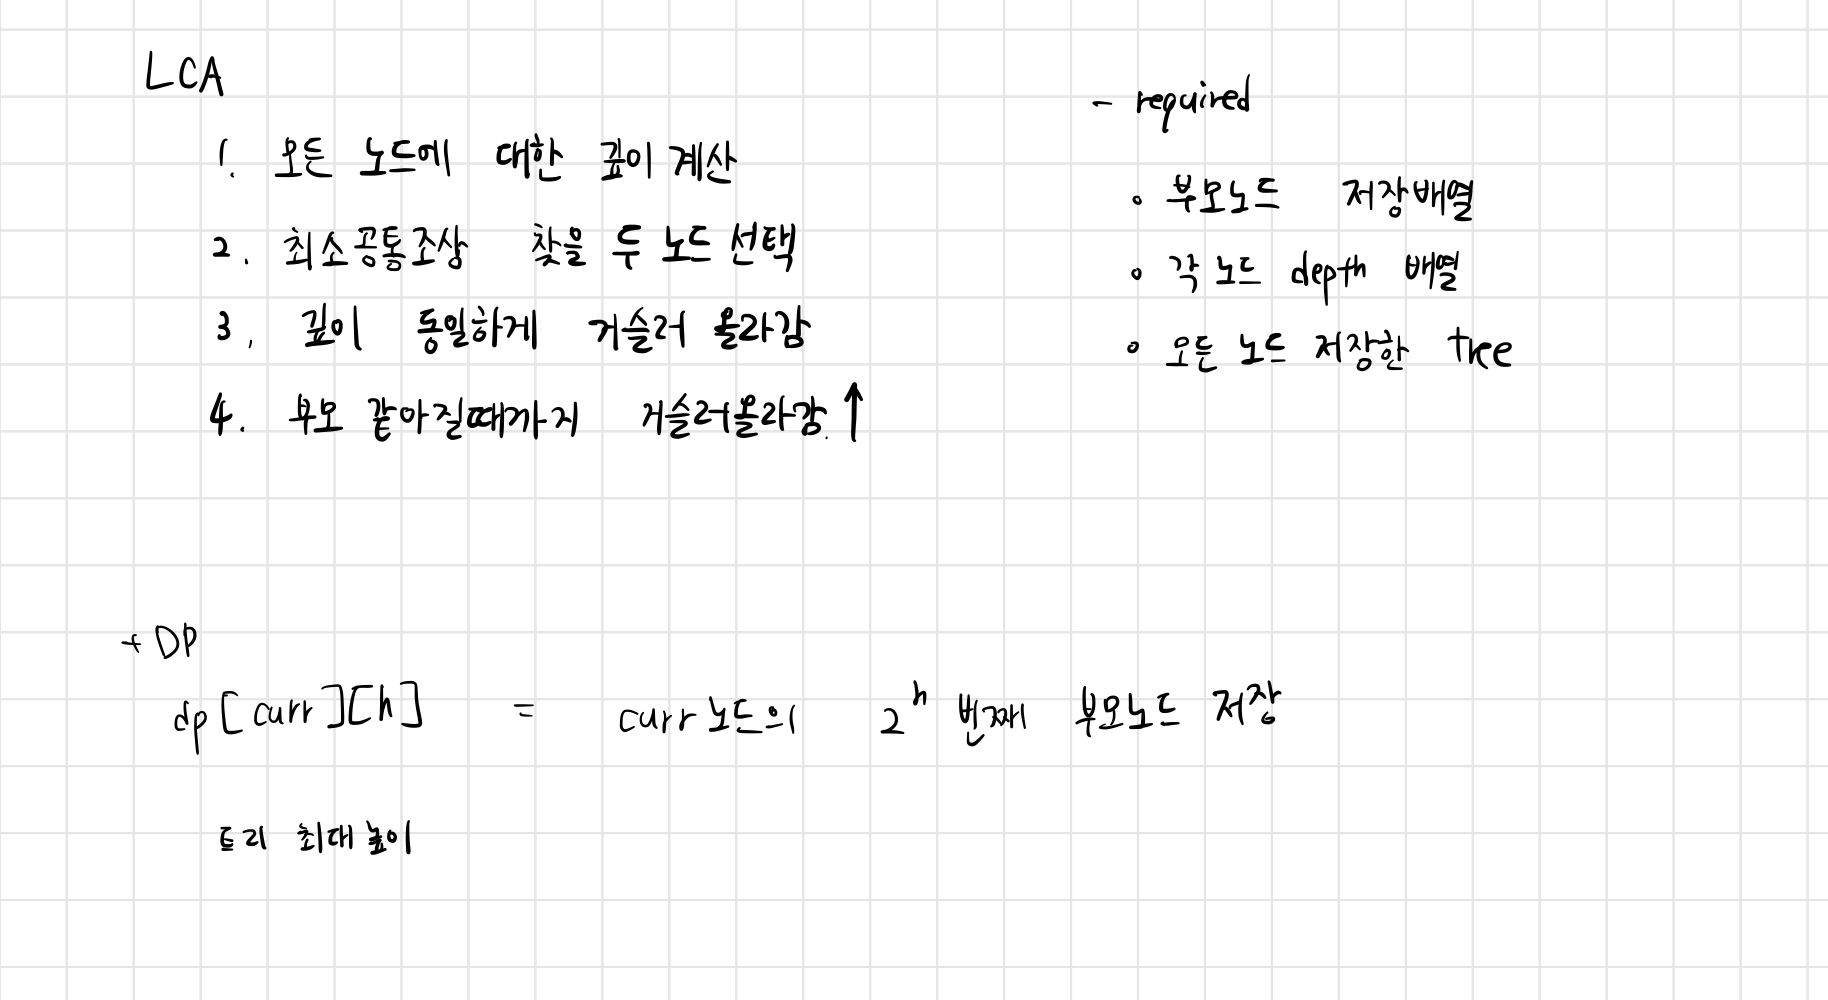 LCA
1. 모든 노드에 대한 깊이 계산
2. 최소공통조상 찾을 두 노드 선택
3. 깊이 동일하게 거슬러 올라감
4. 부모 같아질때까지 거슬러올라감. ↑
- required
• 부모노드 저장배열
• 각 노드 depth 배열
• 모든 노드 저장한 tree
+ DP
dp[curr][h] = curr노드의 2^h 번째 부모노드 저장
트리 최대높이